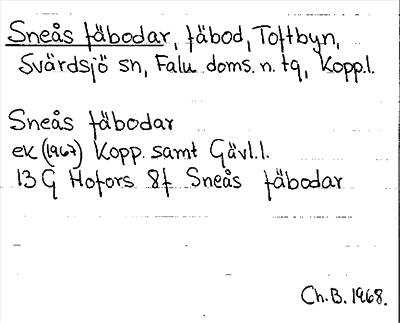 Sneås fäbodar, fäbod, Toftbyn,
Svärdsjö sn, Falu doms. n. tg, Kopp.l.
Sneås fäbodar
ek (1967) Kopp. samt Gävl.l.
13 G Hofors 8f Sneås fäbodar
Ch.B. 1968.